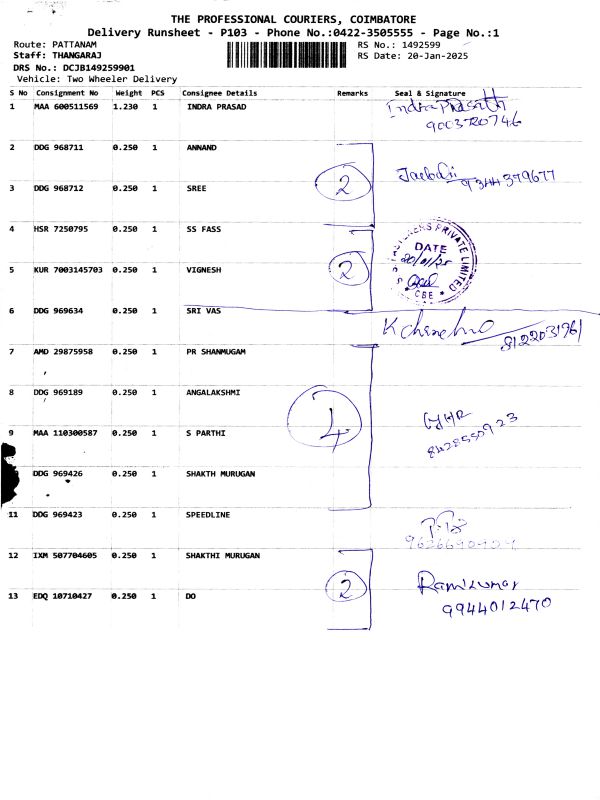 THE PROFESSIONAL COURIERS, COIMBATORE
Delivery Runsheet - P103 - Phone No.:0422-3505555 - Page No.:1
Route: PATTANAM RS No.: 1492599
Staff: THANGARAJ RS Date: 20-Jan-2025
DRS No.: DCJB149259901
Vehicle: Two Wheeler Delivery
S No Consignment No Weight PCS Consignee Details Remarks Seal & Signature
1 MAA 600511569 1.230 1 INDRA PRASAD Indra Prasath
9003720746
2 DDG 968711 0.250 1 ANNAND
2 9344379677
3 DDG 968712 0.250 1 SREE
4 HSR 7250795 0.250 1 SS FASS
PRIVATE LIMITED
DATE
20/01/25
CBE
5 KUR 7003145703 0.250 1 VIGNESH 2
6 DDG 969634 0.250 1 SRI VAS
8122031961
7 AMD 29875958 0.250 1 PR SHANMUGAM
8 DDG 969189 0.250 1 ANGALAKSHMI
4
8428550923
9 MAA 110300587 0.250 1 S PARTHI
DDG 969426 0.250 1 SHAKTH MURUGAN
11 DDG 969423 0.250 1 SPEEDLINE
12 IXM 507704605 0.250 1 SHAKTHI MURUGAN
2 Ramkumar
13 EDQ 10710427 0.250 1 DO 9944012470